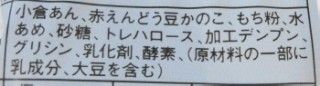 小倉あん、赤えんどう豆かのこ、もち粉、水
あめ、砂糖、トレハロース、加工デンプン、
グリシン、乳化剤、酵素、（原材料の一部に
乳成分、大豆を含む）